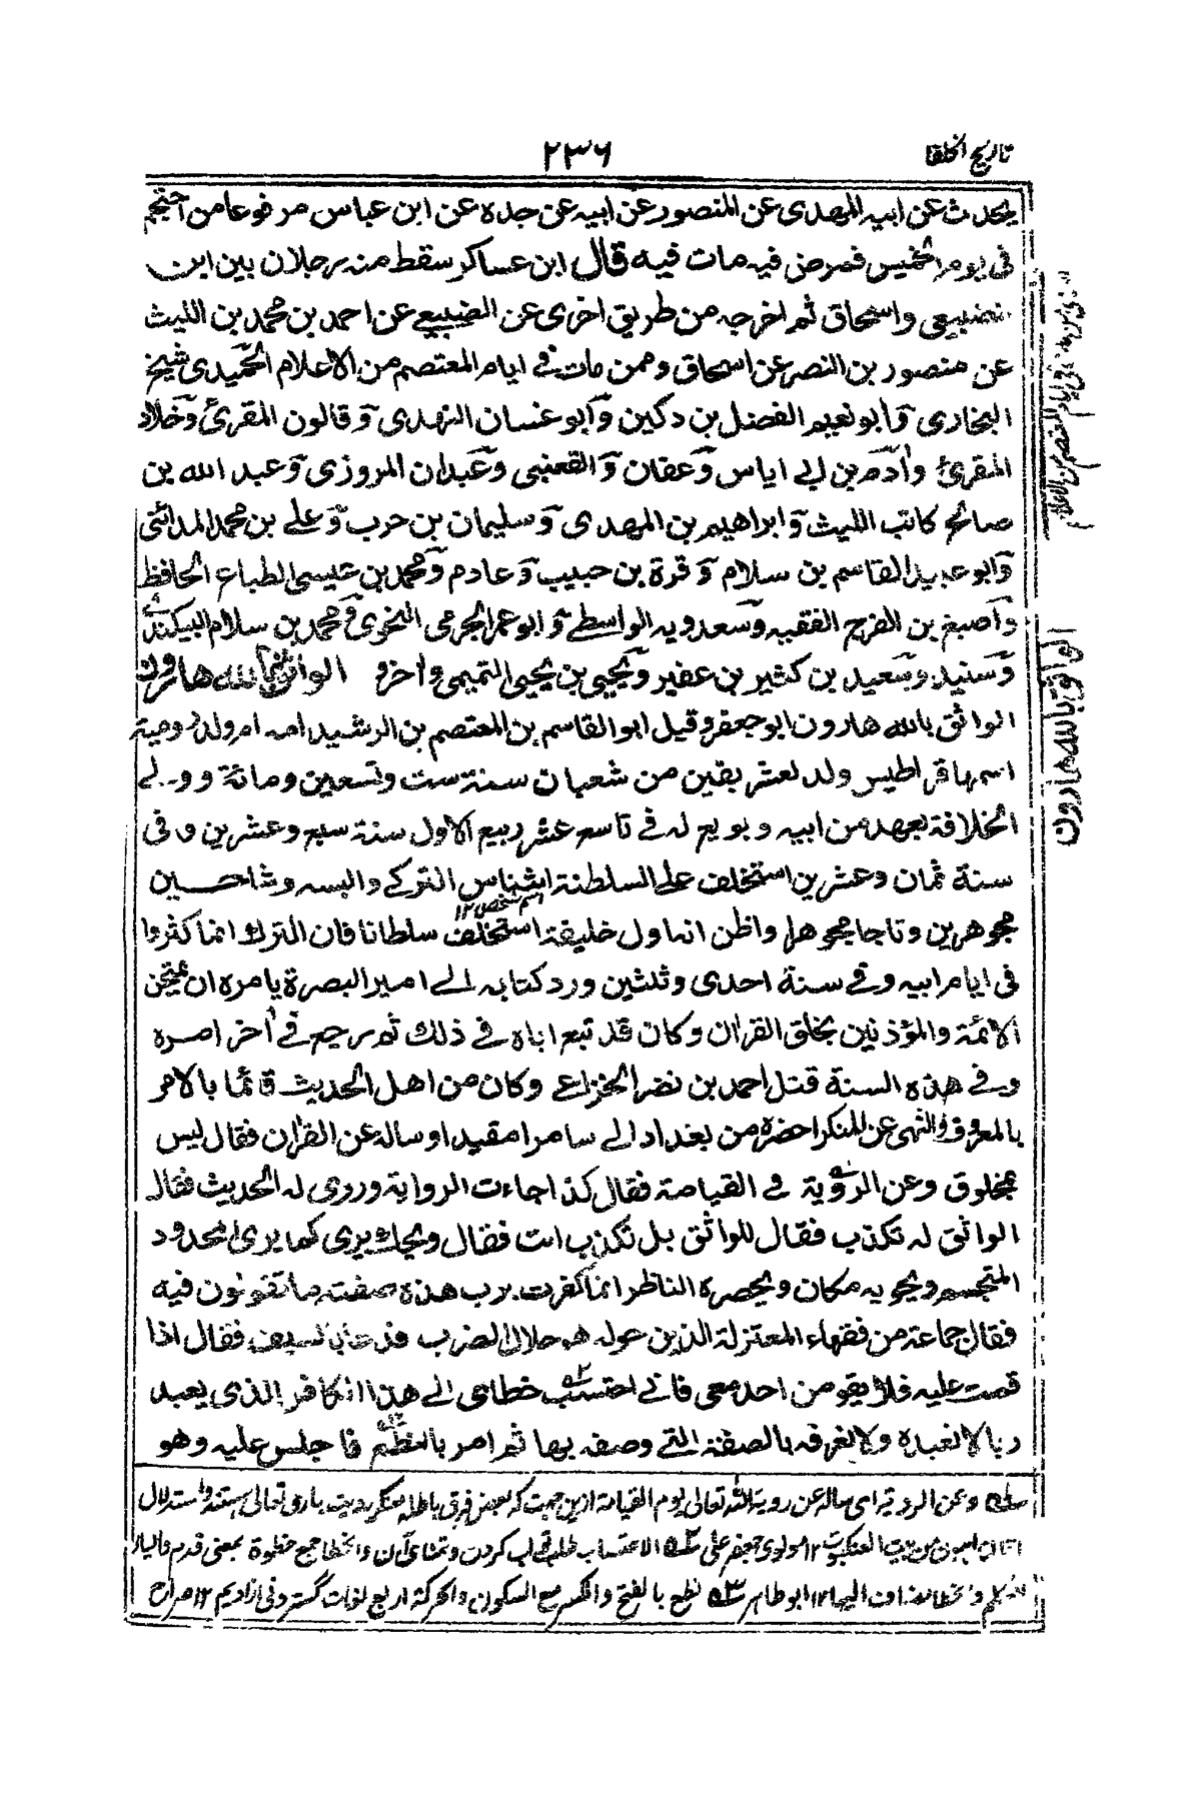 تاريخ الخلفا
۲۳۶
يحدث عن ابيه المهدى عن المنصور عن ابيه عن جده عن ابن عباس مرفوعا من احتجم
فى يوم الخميس فمرض فيه مات فيه قال ابن عساكر سقط منه رجلان بين ابن
الضبيعى واسحاق ثم اخرجه من طريق اخرى عن الضبيعى عن احمد بن محمد بن الليث
عن منصور بن النصر عن اسحاق وممن مات فى ايام المعتصم من الاعلام الحميدى شيخ
البخارى وابو نعيم الفضل بن دكين وابو غسان النهدى وقالون المقرئ وخلاد
المقرئ وادم بن ابى اياس وعفان والقعنبى وعبدان المروزى وعبد الله بن
صالح كاتب الليث وابراهيم بن المهدى وسليمان بن حرب وعلى بن محمد المدائنى
وابو عبيد القاسم بن سلام وقرة بن حبيب وعادم ومحمد بن عيسى الطباع الحافظ
واصبغ بن الفرج الفقيه وسعدويه الواسطى وابو عمر الجرمى النحوى ومحمد بن سلام البيكندى
وسنيد وسعيد بن كثير بن عفير ويحيى بن يحيى التميمى واخرو الواثق بالله هارون
الواثق بالله هارون ابو جعفر وقيل ابو القاسم بن المعتصم بن الرشيد امه ام ولد رومية
اسمها قراطيس ولد لعشر بقين من شعبان سنة ست وتسعين ومائة وولى
الخلافة بعهد من ابيه وبويع له فى تاسع عشر ربيع الاول سنة سبع وعشرين وفى
سنة ثمان وعشرين استخلف على السلطنة اشناس التركى والبسه وشاحين
اسم شخص ۱۲
مجوهرين وتاجا مجوهرا واظن انه اول خليفة استخلف سلطانا فان الترك انما كثروا
فى ايام ابيه وفى سنة احدى وثلثين ورد كتابه الى امير البصرة يامره ان يمتحن
الائمة والمؤذنين بخلق القران وكان قد تبع اباه فى ذلك ثم رجع فى اخر امره
وفى هذه السنة قتل احمد بن نضر الخزاعى وكان من اهل الحديث قائما بالامر
بالمعروف والنهى عن المنكر احضره من بغداد الى سامرا مقيدا وساله عن القران فقال ليس
بمخلوق وعن الرؤية فى القيامة فقال كذا جاءت الرواية وروى له الحديث فقال
الواثق له تكذب فقال للواثق بل تكذب انت فقال ويحك يرى كما يرى المحدود
المتجسم ويحويه مكان ويحصره الناظر انما كفرت برب هذه صفته ما تقولون فيه
فقال جماعة من فقهاء المعتزلة الذين حوله هو حلال الضرب فدعا بالسيف فقال اذا
قمت عليه فلا يقومن احد معى فانى احتسب خطاى الى هذا الكافر الذى يعبد
ربا لا نعبده ولا نعرفه بالصفة التى وصفه بها ثم امر بالنطع فاجلس عليه وهو
وعن الروية اى ساله عن روية الله تعالى يوم القيامة ازين جهت كه بعض فرق باطله منكر رويت بارى تعالى هستند واستدلال
من بيت العنكبوت ۱۲ مولوى جعفر على الاحتساب طلب ثواب كردن وخطا جمع خطوة بمعنى قدم
مضاف اليها ۱۲ ابو طاهر نطع بالفتح والكسر مع السكون والحركة اربع لغات گستردنى از اديم ۱۲ صراح
الواثق بالله هارون